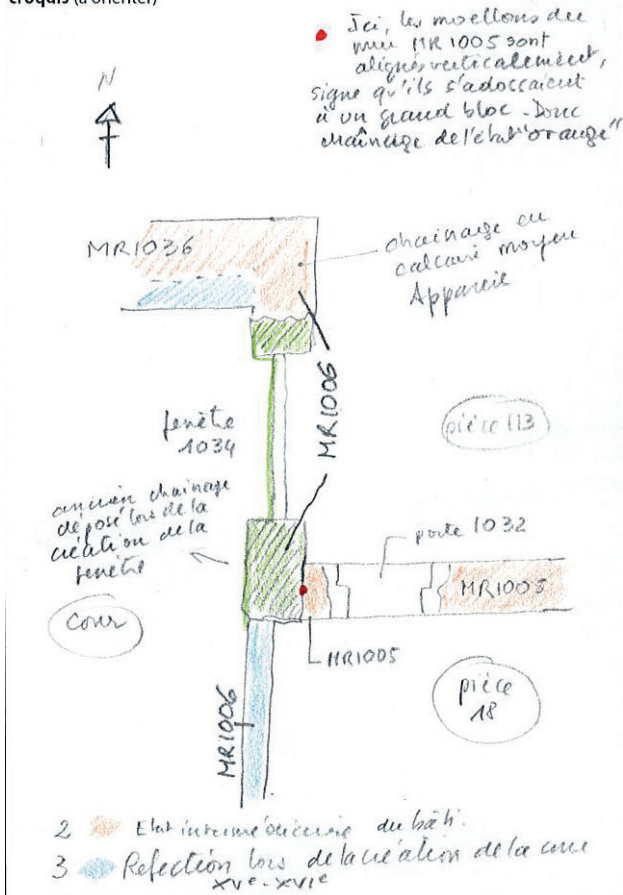 croquis (à orienter)
Ici, les moellons du
mur MR1005 sont
alignés verticalement,
signe qu'ils s'adossaient
à un grand bloc. Donc
chaînage de l'état "orange"
N
MR1036
chainage en
calcaire moyen
Appareil
MR1006
fenêtre
1034
pièce 113
ancien chainage
déposé lors de la
création de la
fenêtre
porte 1032
MR1005
cour
MR1005
pièce
18
MR1006
2 Etat intermédiaire du bâti.
3 Refection lors de la création de la cour
XVe-XVIe